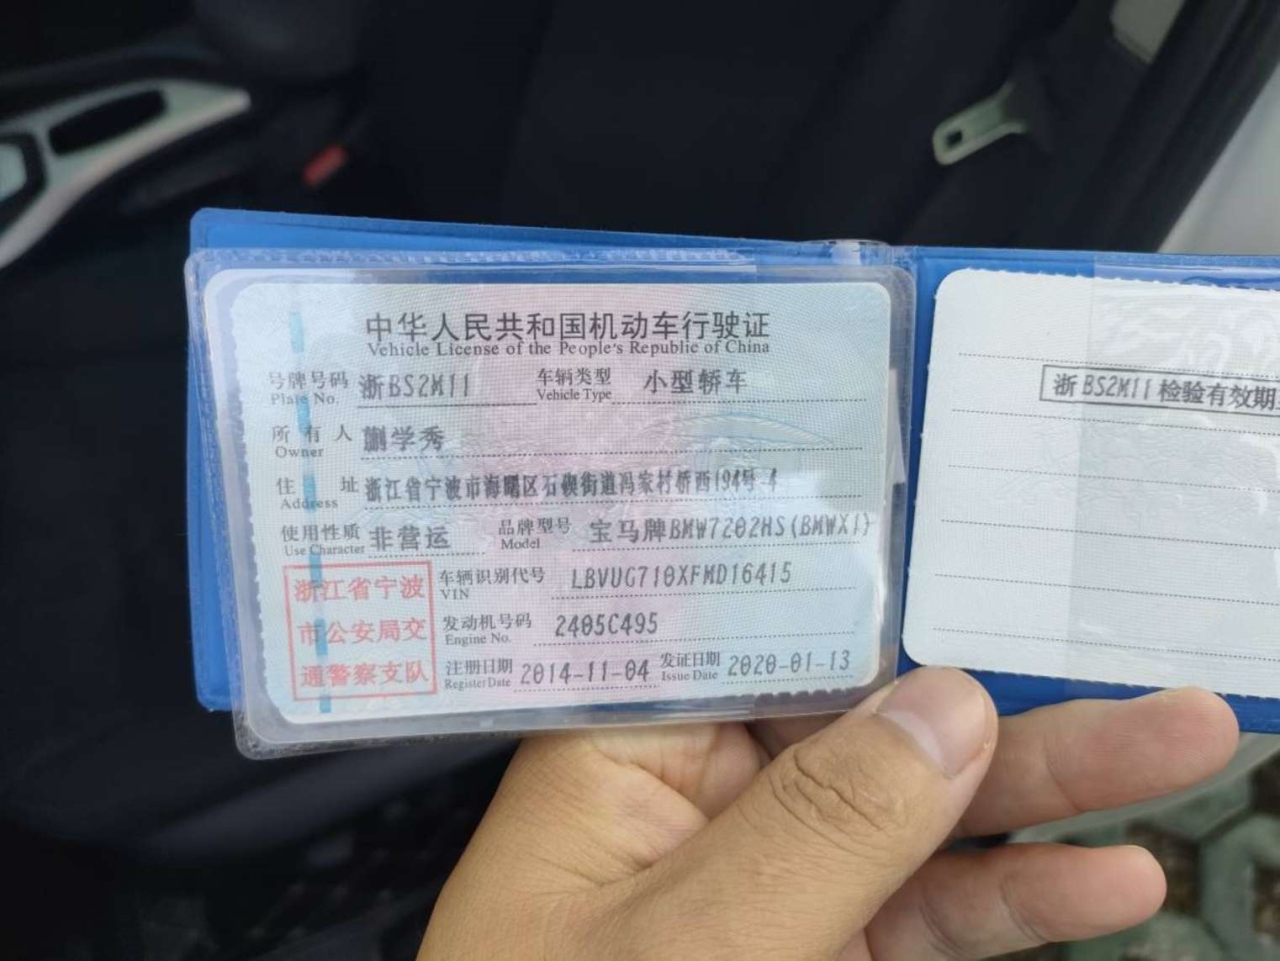 中华人民共和国机动车行驶证
Vehicle License of the People's Republic of China
号牌号码 浙BS2M11 车辆类型 小型轿车
Plate No. Vehicle Type
所有人 蒯学秀
Owner
住址 浙江省宁波市海曙区石碶街道冯家村桥西194号-4
Address
使用性质 非营运 品牌型号 宝马牌BMW7202HS(BMWX1)
Use Character Model
浙江省宁波
市公安局交
通警察支队
车辆识别代号 LBVUG710XFMD16415
VIN
发动机号码 2405C495
Engine No.
注册日期 2014-11-04 发证日期 2020-01-13
Register Date Issue Date
浙BS2M11检验有效期